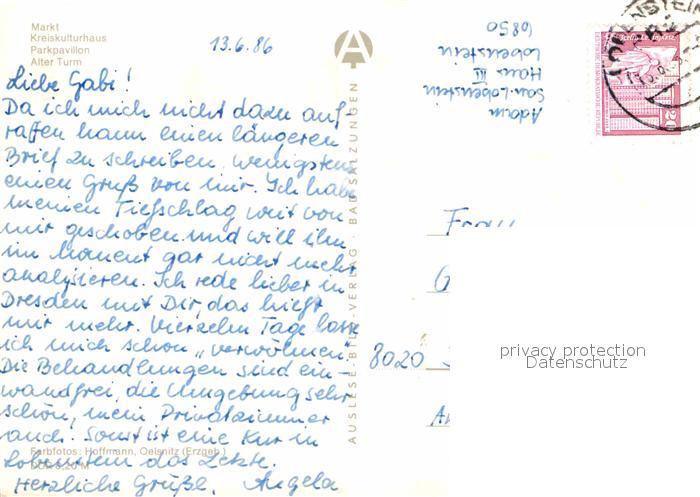 Markt
Kreiskulturhaus
Parkpavillon
Alter Turm
13.6.86
Liebe Gabi!
Da ich mich nicht dazu auf-
raffen kann einen längeren
Brief zu schreiben, wenigstens
einen Gruß von mir. Ich habe
meinen Tiefschlag weit von
mir geschoben und will ihn
im Moment gar nicht mehr
analysieren. Ich rede lieber in
Dresden mit Dir, das hieft
mir mehr. Vierzehn Tage lasse
ich mich schon „verwöhnen".
Die Behandlungen sind ein-
wandfrei, die Umgebung sehr
schön, mein Privatzimmer
auch. Sonst ist eine Kur in
Lobenstein das Letzte.
Herzliche Grüße, Angela
Farbfotos: Hoffmann, Oelsnitz (Erzgeb.)
DDR 0,20 M
AUSLESE-BILD-VERLAG · BAD SALZUNGEN
Adam
San. Lobenstein
Haus III
Lobenstein
6850
LOBENSTEIN
DEUTSCHE DEMOKRATISCHE REPUBLIK
20
Frau
G
8020
privacy protection
Datenschutz